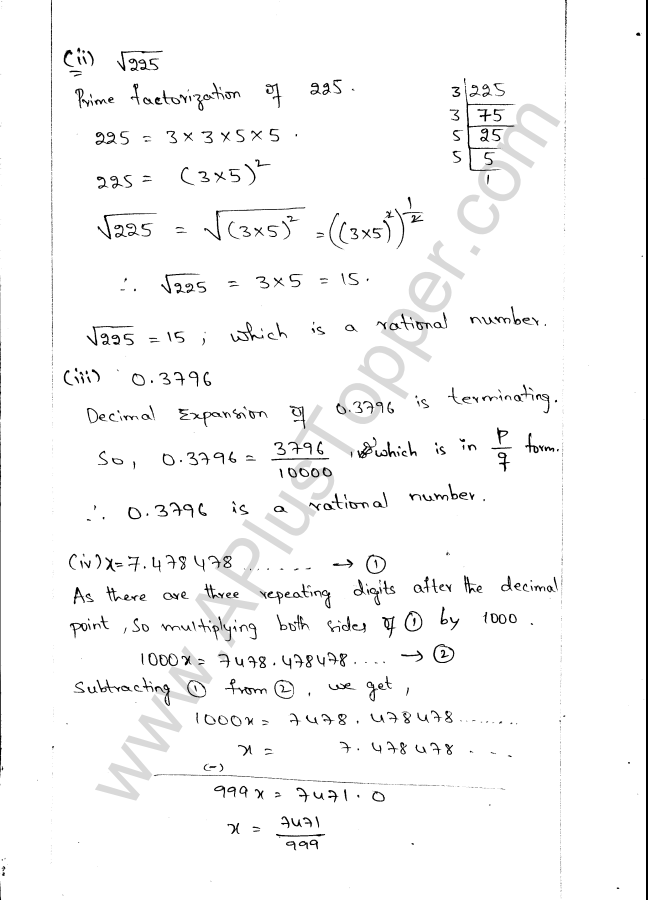 (ii) √225
Prime factorization of 225.
225 = 3 × 3 × 5 × 5 .
225 = (3×5)²
√225 = √(3×5)² = ((3×5)²)^1/2
∴ √225 = 3×5 = 15.
√225 = 15 ; which is a rational number.
3 | 225
3 | 75
5 | 25
5 | 5
1
(iii) 0.3796
Decimal Expansion of 0.3796 is terminating.
So, 0.3796 = 3796/10000 , which is in p/q form.
∴ 0.3796 is a rational number.
(iv) x = 7.478478 ....... → ①
As there are three repeating digits after the decimal
point, So multiplying both sides of ① by 1000 .
1000x = 7478.478478.... → ②
Subtracting ① from ②, we get,
1000x = 7478.478478........
x = 7.478478 . . .
(-)
999x = 7471.0
x = 7471/999
www.APlusTopper.com